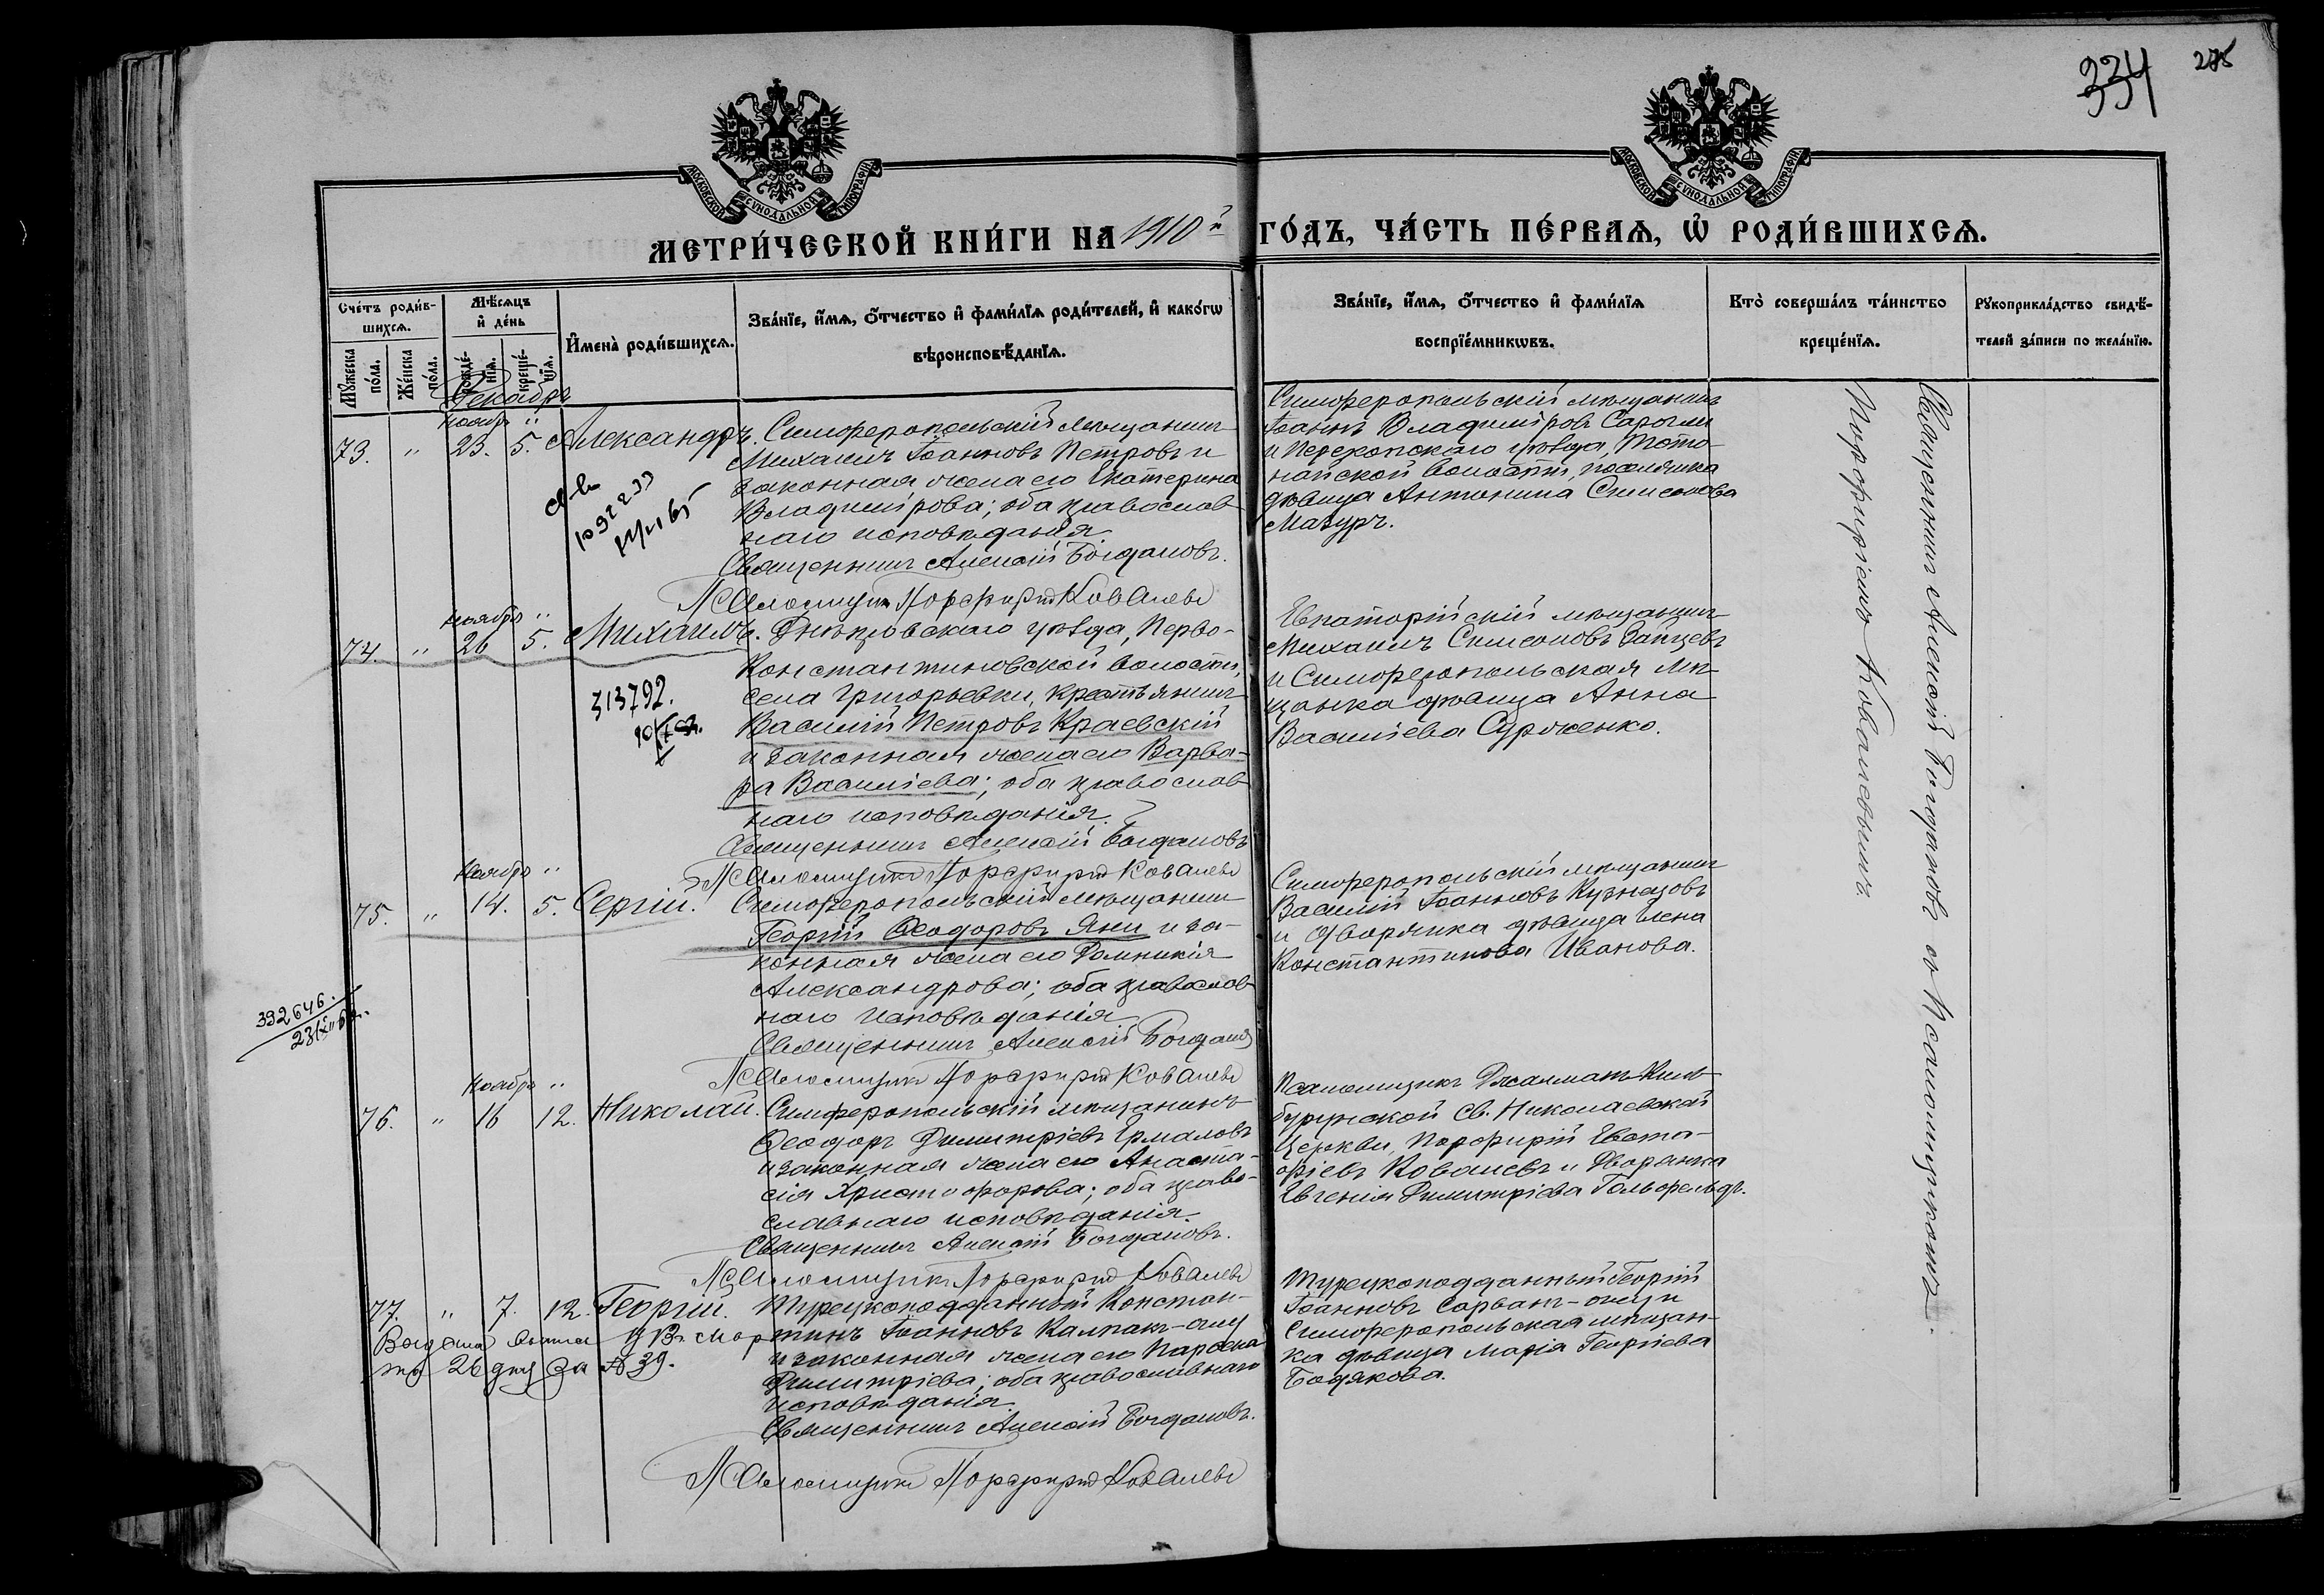 334 275
МОСКОВСКОЙ СѴНОДАЛЬНОЙ ТИПОГРАФІИ.
МОСКОВСКОЙ СѴНОДАЛЬНОЙ ТИПОГРАФІИ.
МЕТРИ́ЧЕСКОЙ КНИ́ГИ НА 1910й ГО́ДЪ, ЧА́СТЬ ПЕ́РВАѦ, Ѡ҆ РОДИ́ВШИХСѦ.
Сче́тъ роди́в-
шихсѧ.
Мꙋ́жеска по́ла.
Же́нска по́ла.
Мѣ́сѧцъ
и҆ де́нь
рожде́-
нїѧ.
креще́-
нїѧ.
И҆мена̀ роди́вшихсѧ.
Зва́нїе, и҆́мѧ, ѻ҆́тчество и҆ фами́лїѧ роди́телей, и҆ како́гѡ
вѣроисповѣ́данїѧ.
Зва́нїе, и҆́мѧ, ѻ҆́тчество и҆ фами́лїѧ
воспрїе́мникѡвъ.
Кто̀ соверша́лъ та́инство
креще́нїѧ.
Рꙋкоприкла́дство свидѣ́-
телей за́писи по жела́нїю.
Декабрь
Ноябрь "
73. " 23. 5. Александръ. Симферопольскій мѣщанинъ
Михаилъ Іоанновъ Петровъ и
законная жена его Екатерина
Владимірова; оба православ-
наго исповѣданія.
Священникъ Алексій Богдановъ.
Псаломщикъ Порфирій Ковалевъ
Симферопольскій мѣщанинъ
Іоаннъ Владиміровъ
и Перекопскаго уѣзда,
найской волости, поселянка
дѣвица Антонина Симеонова
Мазуръ.
Ноябрь "
74. " 26 5. Михаилъ. Днѣпровскаго уѣзда, Перво-
Константиновской волости,
села Григорьевки, крестьянинъ
Василій Петровъ Краевскій
и законная жена его Варва-
ра Василіева; оба православ-
наго исповѣданія.
Священникъ Алексій Богдановъ
Псаломщикъ Порфирій Ковалевъ
313792.
Евпаторійскій мѣщанинъ
Михаилъ Симеоновъ Зайцевъ
и Симферопольская мѣ-
щанка дѣвица Анна
Василіева Сурженко.
Ноябрь "
75. " 14. 5. Сергій. Симферопольскій мѣщанинъ
Георгій Ѳеодоровъ Яни и за-
конная жена его Домникія
Александрова; оба православ-
наго исповѣданія
Священникъ Алексій Богдановъ
Псаломщикъ Порфирій Ковалевъ
392646.
Симферопольскій мѣщанинъ
Василій Іоанновъ Кузнецовъ
и дворянка дѣвица Елена
Константинова Иванова.
Ноябрь "
76. " 16 12. Николай. Симферопольскій мѣщанинъ
Ѳеодоръ Димитріевъ Ермаловъ
и законная жена его Анаста-
сія Христофорова; оба право-
славнаго исповѣданія.
Священникъ Алексій Богдановъ.
Псаломщикъ Порфирій Ковалевъ
Псаломщикъ Джалманъ-Киль-
бурунской Св. Николаевской
церкви, Порфирій Евста-
фіевъ Ковалевъ и Дворянка
Евгенія Димитріева Гольфельдъ.
77. " 7. 12. Георгій. Турецкоподданный Констан-
тинъ Іоанновъ Калпакъ-оглу
и законная жена его Параскева
Димитріева; оба православнаго
исповѣданія.
Священникъ Алексій Богдановъ.
Псаломщикъ Порфирій Ковалевъ
26 № 39.
Турецкоподданный Георгій
Іоанновъ Сарванъ-оглу и
Симферопольская мѣщан-
ка дѣвица Марія Георгіева
Бодякова.
Священникъ Алексій Богдановъ съ Псаломщикомъ
Порфиріемъ Ковалевымъ.